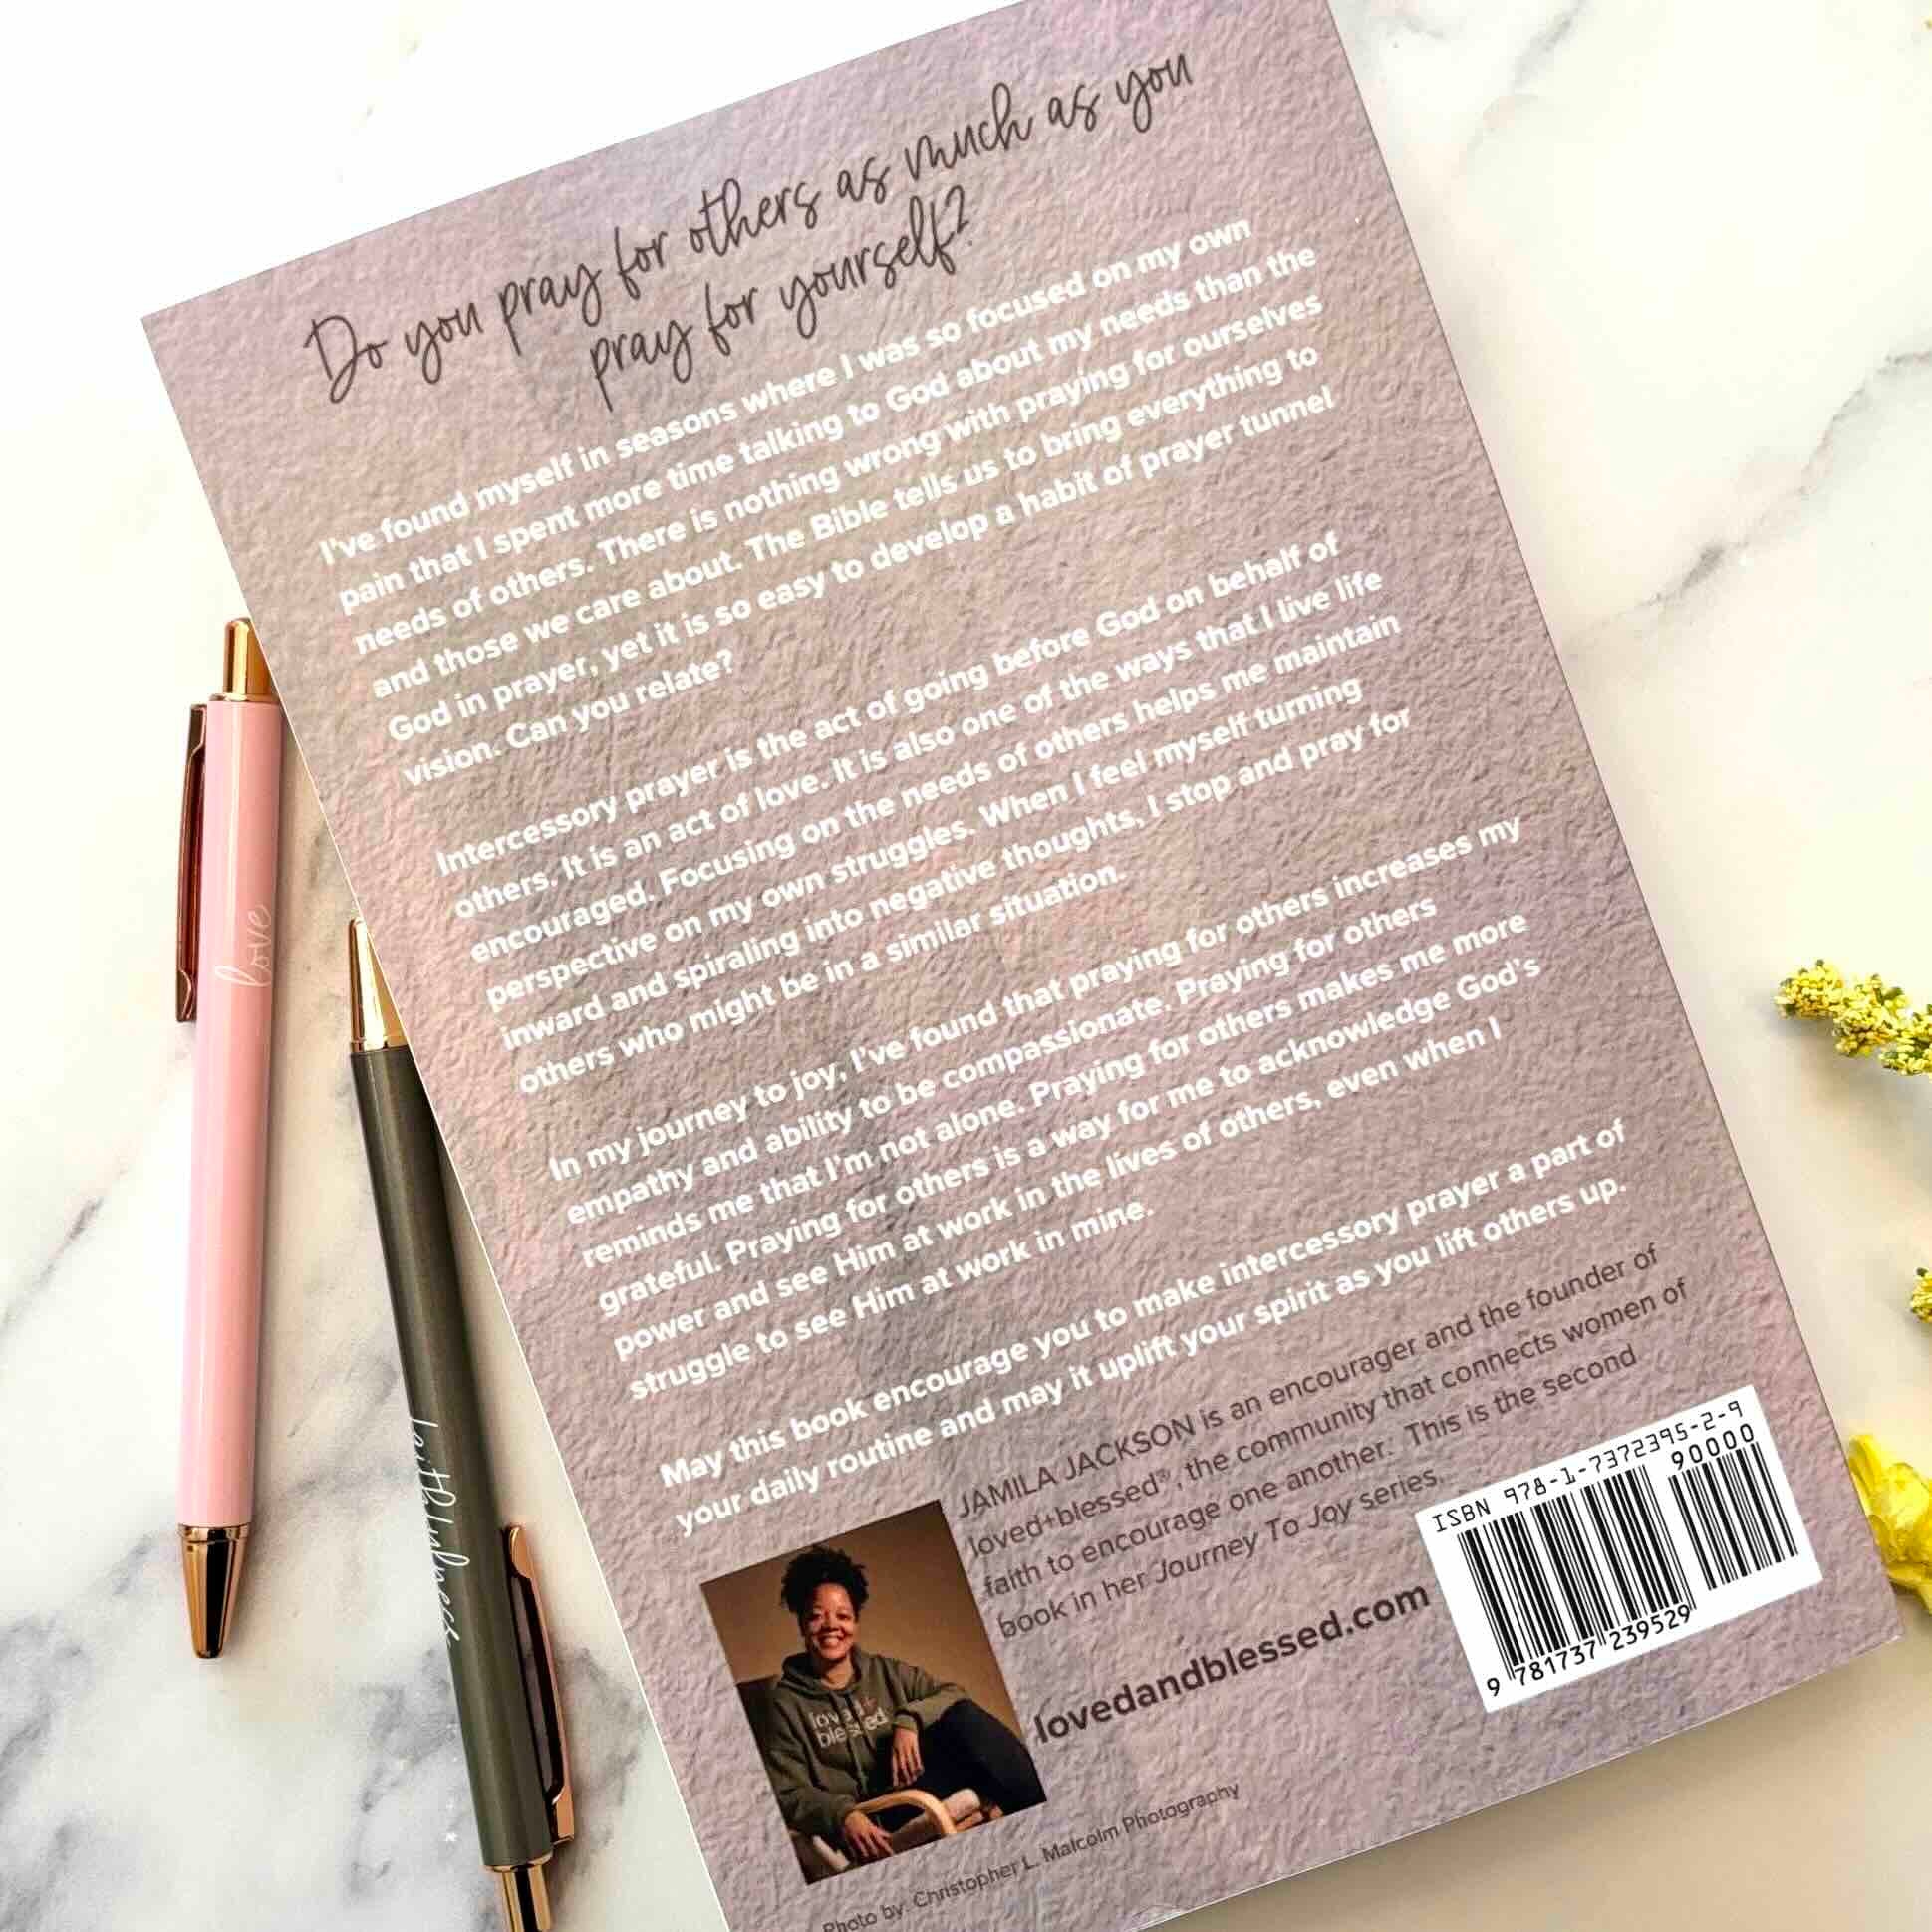 Do you pray for others as much as you
pray for yourself?
I've found myself in seasons where I was so focused on my own
pain that I spent more time talking to God about my needs than the
needs of others. There is nothing wrong with praying for ourselves
and those we care about. The Bible tells us to bring everything to
God in prayer, yet it is so easy to develop a habit of prayer tunnel
vision. Can you relate?
Intercessory prayer is the act of going before God on behalf of
others. It is an act of love. It is also one of the ways that I live life
encouraged. Focusing on the needs of others helps me maintain
perspective on my own struggles. When I feel myself turning
inward and spiraling into negative thoughts, I stop and pray for
others who might be in a similar situation.
In my journey to joy, I've found that praying for others increases my
empathy and ability to be compassionate. Praying for others
reminds me that I'm not alone. Praying for others makes me more
grateful. Praying for others is a way for me to acknowledge God's
power and see Him at work in the lives of others, even when I
struggle to see Him at work in mine.
May this book encourage you to make intercessory prayer a part of
your daily routine and may it uplift your spirit as you lift others up.
JAMILA JACKSON is an encourager and the founder of
loved+blessed®, the community that connects women of
faith to encourage one another. This is the second
book in her Journey To Joy series.
lovedandblessed.com
ISBN 978-1-7372395-2-9
90000
9 781737 239529
Photo by: Christopher L. Malcolm Photography
loved+
blessed
love
faithfulness